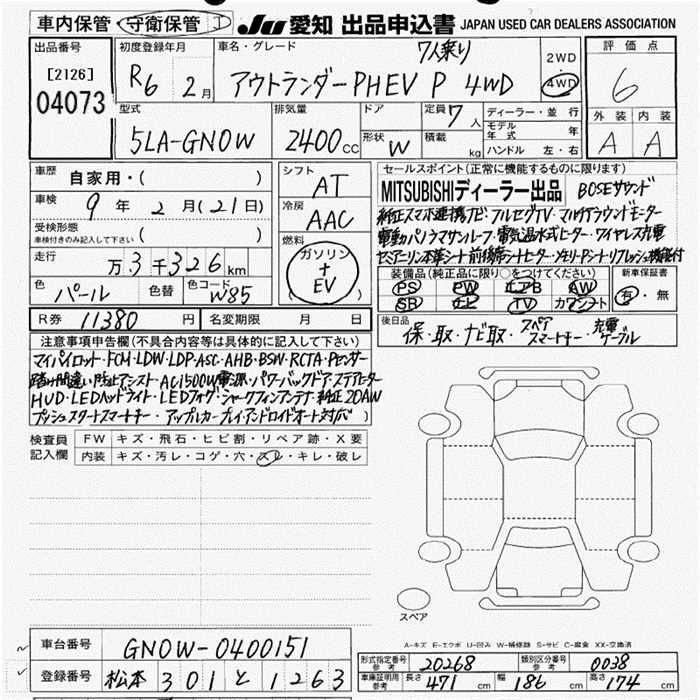 車内保管・守衛保管 I JU 愛知 出品申込書 JAPAN USED CAR DEALERS ASSOCIATION
出品番号
[2126]
04073
初度登録年月
R6 2月
車名・グレード 7人乗り
アウトランダーPHEV P 4WD
2WD
4WD
評価点
6
型式
5LA-GN0W
排気量
2400cc
ドア
形状 W
定員 7人
積載 kg
ディーラー・並行
モデル年式 年
ハンドル 左・右
外装 内装
A A
車歴 自家用・( )
車検 9年 2月(21日)
受検形態
車検付きのみ記入して下さい ( )
走行 万3千326km
色 パール 色替 色コード W85
シフト
AT
冷房
AAC
燃料
ガソリン
+
EV
R券 11380円 名変期限 月 日
セールスポイント(正常に機能するものに限ります)
MITSUBISHIディーラー出品 BOSEサウンド
純正スマホ連携ナビ・フルセグTV・マルチアラウンドモニター
電動パノラマサンルーフ・電気温水式ヒーター・ワイヤレス充電
セミアニリン本革シート・前後席シートヒーター・フロントシートリフレッシュ機能付
装備品(純正品に限り○をつけてください)
PS PW エアB AW
SR ナビ TV カワシート
新車保証書
有・無
後日品
保・取・ナビ取・スペアスマートキー・充電ケーブル
注意事項申告欄(不具合内容等は具体的に記入して下さい)
マイパイロット・FCM・LDW・LDP・ASC・AHB・BSW・RCTA・Pセンサー
踏み間違い防止アシスト・AC1500W電源・パワーバックドア・ステアヒーター
HUD・LEDヘッドライト・LEDフォグ・シャークフィンアンテナ・純正20AW
プッシュスタートスマートキー・アップルカープレイ・アンドロイドオート対応
検査員記入欄
FW キズ・飛石・ヒビ割・リペア跡・X要
内装 キズ・汚レ・コゲ・穴・スレ・キレ・破レ
スペア
A-キズ E-エクボ U-凹み W-補修跡 S-サビ C-腐食 XX-交換済
車台番号 GN0W-0400151
登録番号 松本 301 と 1263
形式指定番号 参考 20268 類別区分番号 参考 0038
車庫証明用 参考 長さ 471cm 幅 186cm 高さ 174cm